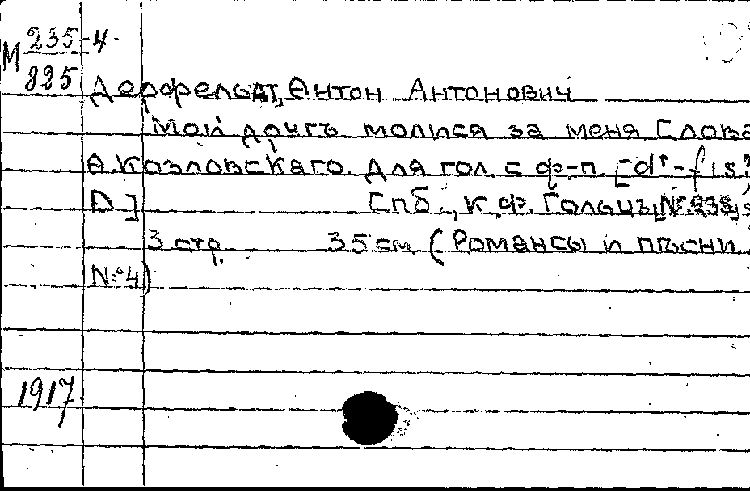 М 235-4
825
Дерфельдт, Антон Антонович
Мой другъ молися за меня Слова
А. Козловскаго. Для гол. с ф-п. [d¹-fis²,
D] Спб., К. Ф. Гольцъ,
3 стр. 35 см (Романсы и пѣсни.
№ 4)
1917